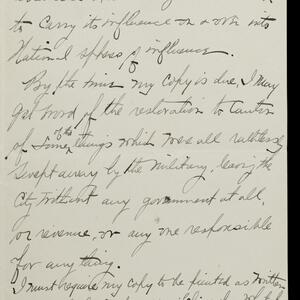 to carry its influence on & on into
National spheres of influence.
By the time my copy is due, I may
get word of the restoration to Canton
of some of the things which were all ruthlessly
swept away by the military, leaving the
City without any government at all,
or revenue, or any one responsible
for any thing.
I must require my copy to be printed as written